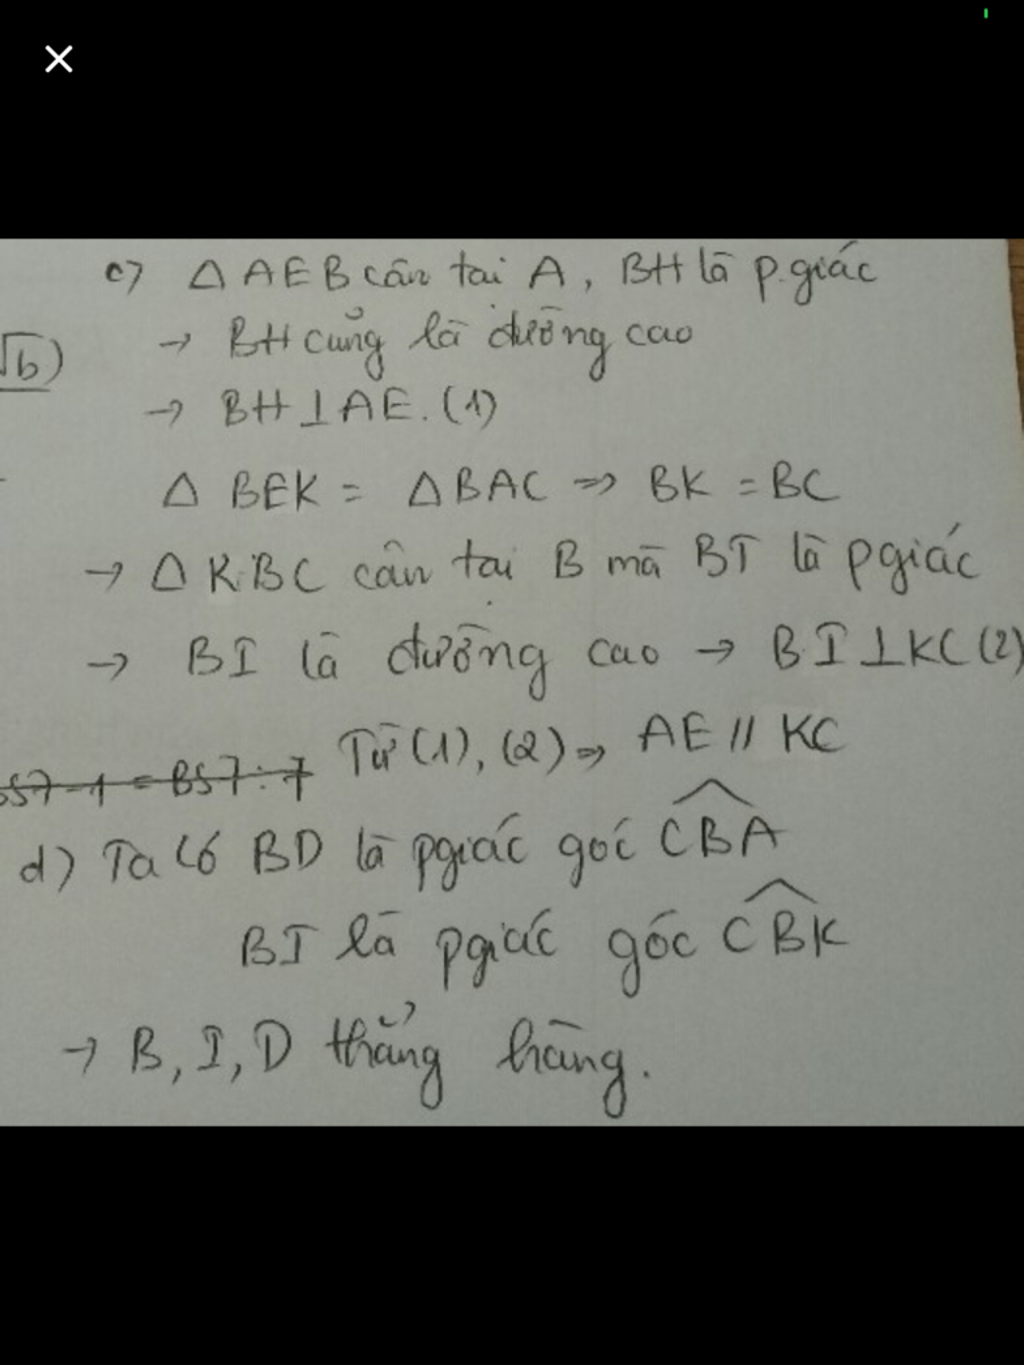 c) △ AEB cân tại A, BH là p.giác
√b)
→ BH cũng là đường cao
→ BH ⊥ AE. (1)
△ BEK = △ BAC => BK = BC
→ △ KBC cân tại B mà BI là pgiác
→ BI là đường cao → BI ⊥ KC (2)
Từ (1), (2) => AE // KC
d) Ta có BD là pgiác góc CBA
BI là pgiác góc CBK
→ B, I, D thẳng hàng.